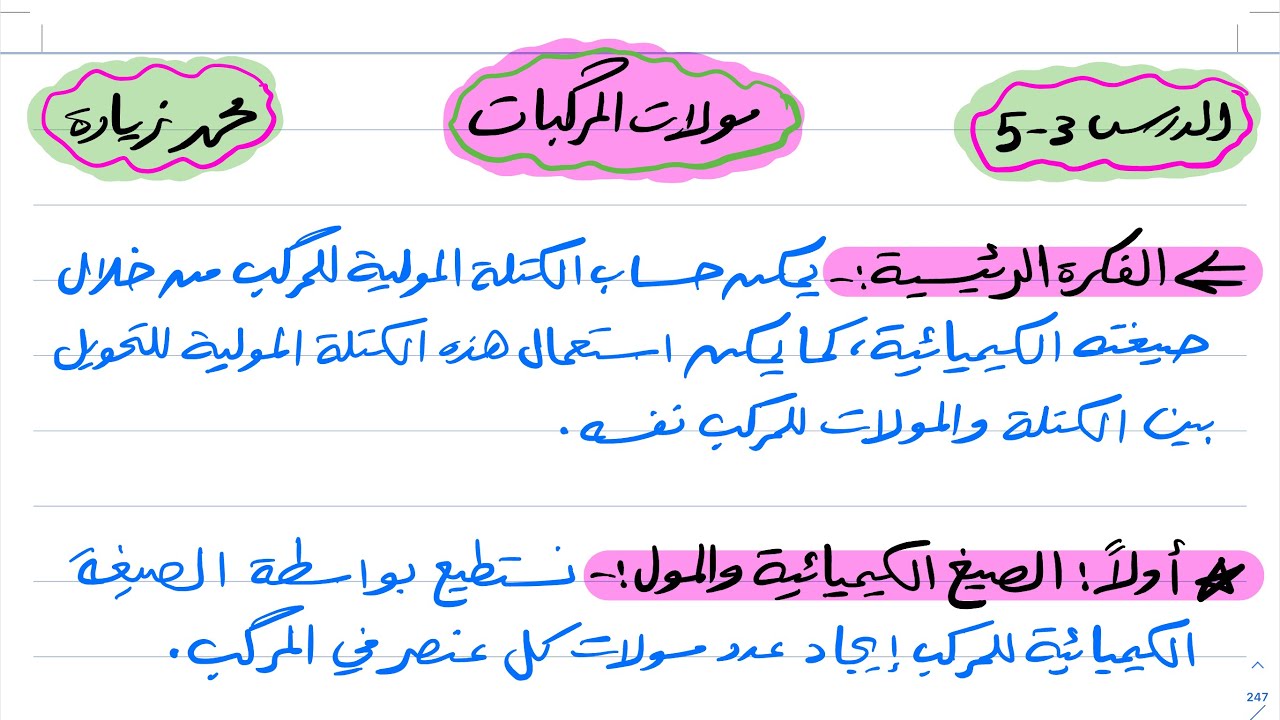 الدرس 3-5
مولات المركبات
محمد زيادة
الفكرة الرئيسية :- يمكن حساب الكتلة المولية للمركب من خلال
صيغته الكيميائية، كما يمكن استعمال هذه الكتلة المولية للتحويل
بين الكتلة والمولات للمركب نفسه.
أولاً: الصيغ الكيميائية والمول:- نستطيع بواسطة الصيغة
الكيميائية للمركب إيجاد عدد مولات كل عنصر في المركب.
247